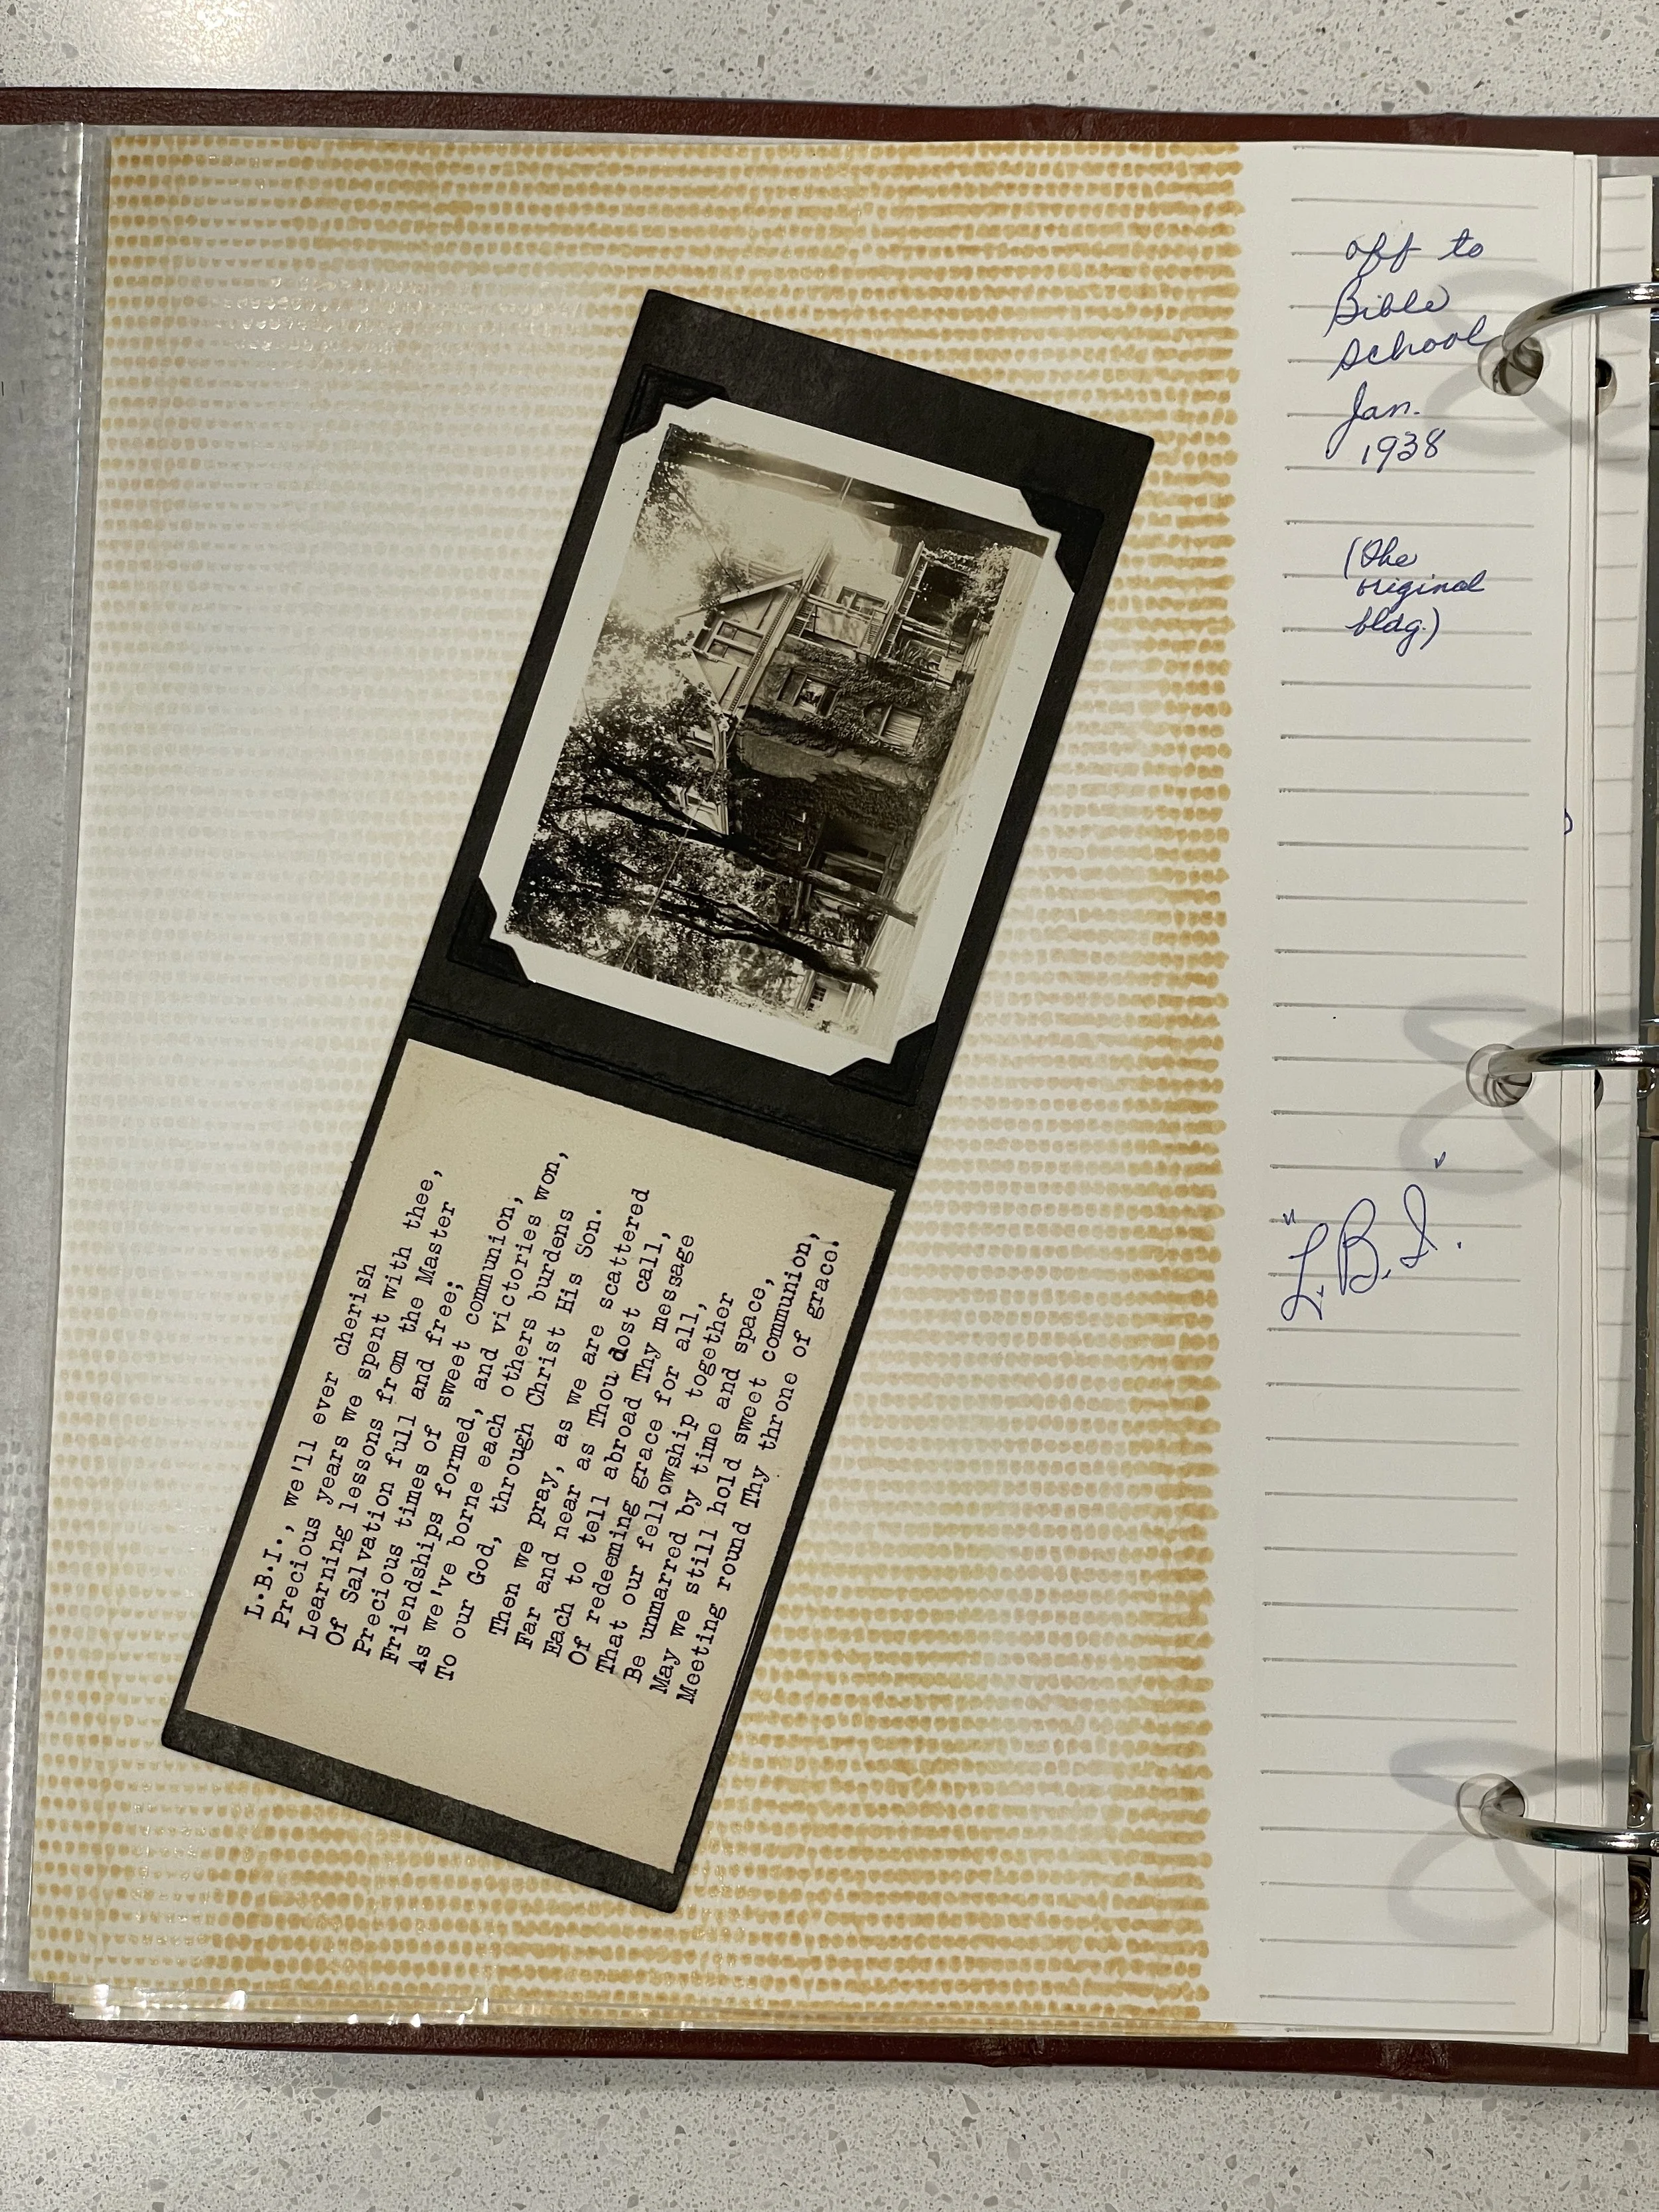 L.B.I., we'll ever cherish
Precious years we spent with thee,
Learning lessons from the Master
Of Salvation full and free;
Precious times of sweet communion,
Friendships formed, and victories won,
As we've borne each others burdens
To our God, through Christ His Son.
Then we pray, as we are scattered
Far and near as Thou dost call,
Each to tell abroad Thy message
Of redeeming grace for all,
That our fellowship together
Be unmarred by time and space,
May we still hold sweet communion,
Meeting round Thy throne of grace.
off to
Bible
School
Jan.
1938
(the
original
bldg.)
"L.B.I."